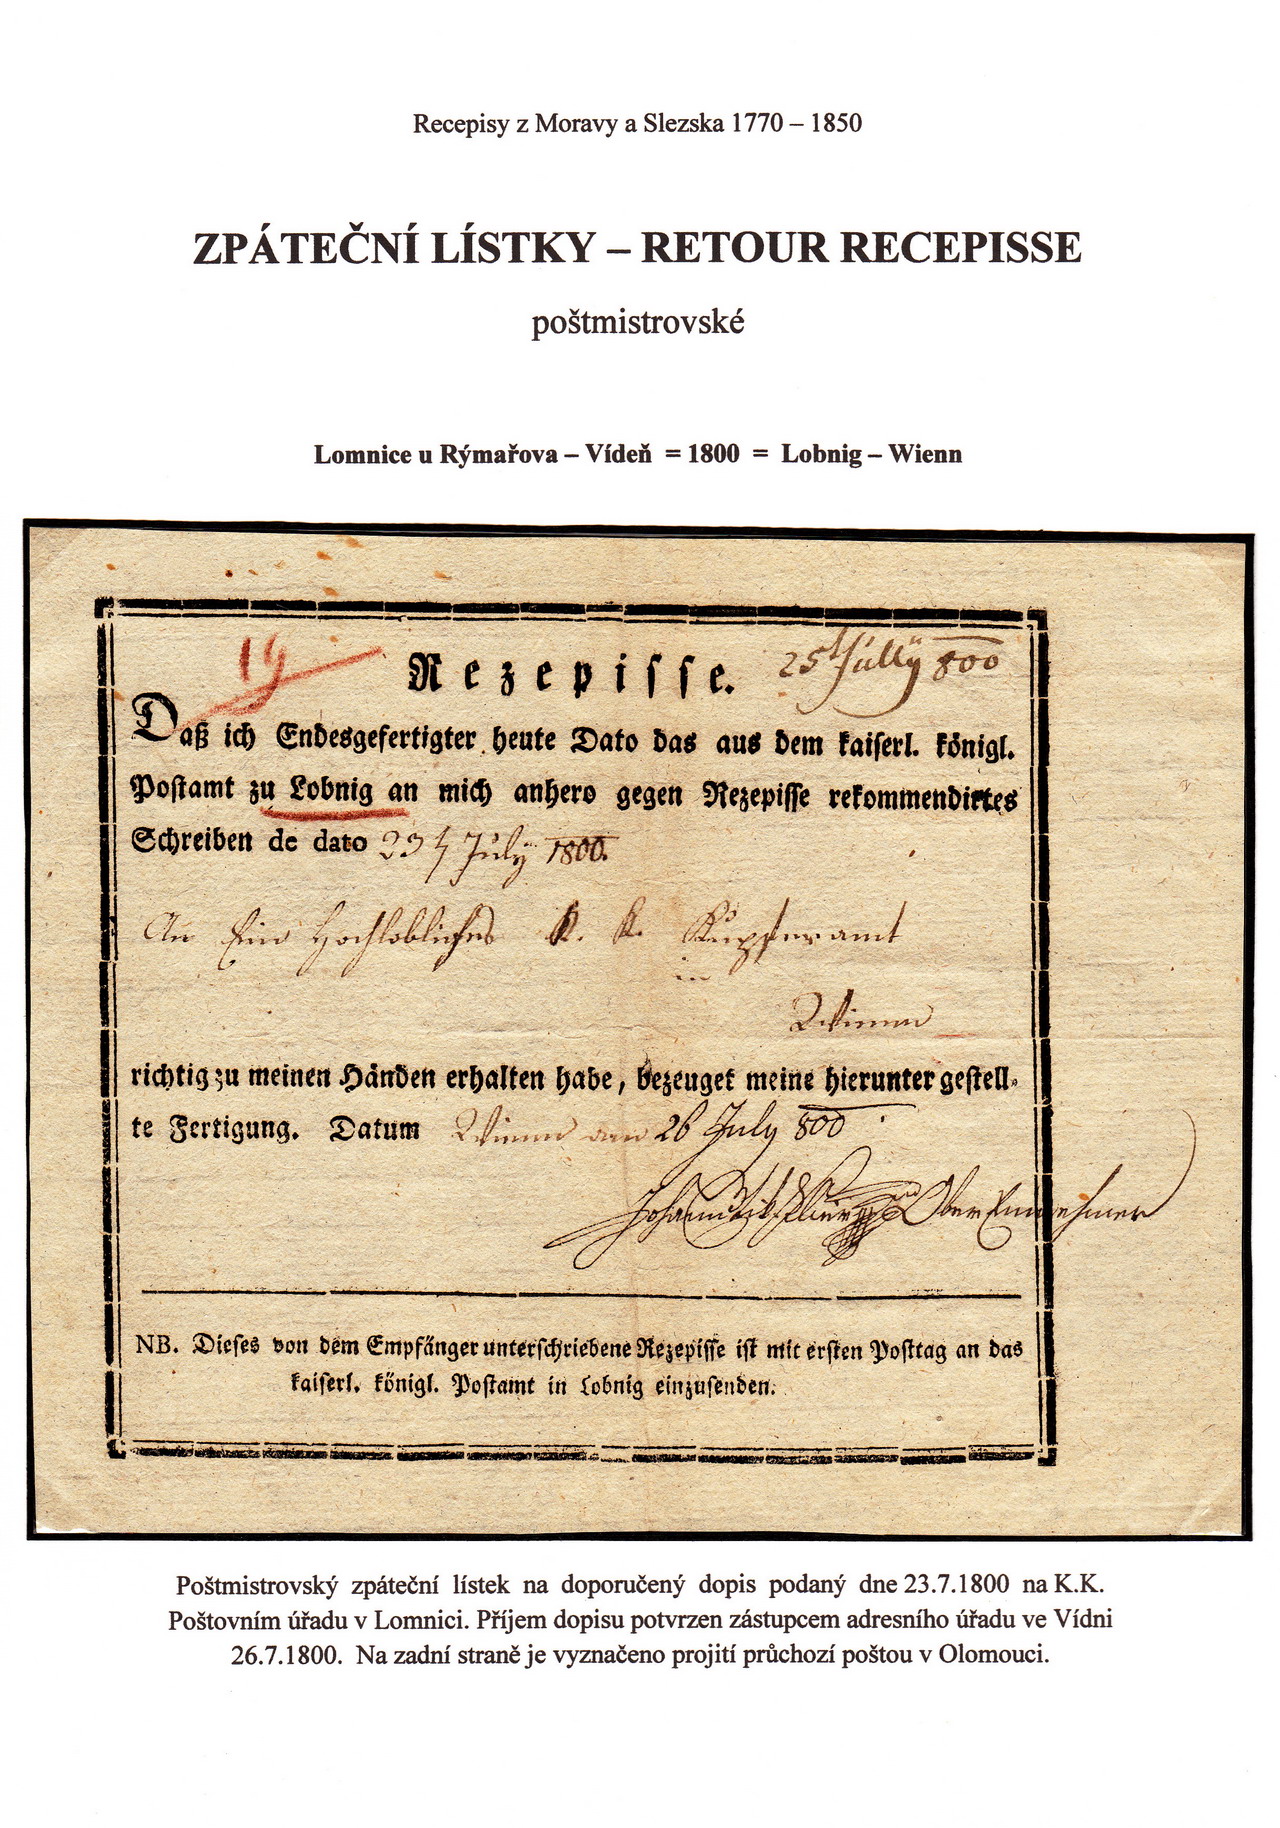 Recepisy z Moravy a Slezska 1770 – 1850
ZPÁTEČNÍ LÍSTKY – RETOUR RECEPISSE
poštmistrovské
Lomnice u Rýmařova – Vídeň = 1800 = Lobnig – Wienn
19
Rezepisse. 25t Jully 800
Daß ich Endesgefertigter heute Dato das aus dem kaiserl. königl.
Postamt zu Lobnig an mich anhero gegen Rezepisse rekommendirtes
Schreiben de dato 23 July 1800.
An Ein Hochlobliches K. K. Kupferamt
in
Wienn
richtig zu meinen Händen erhalten habe, bezeuget meine hierunter gestell-
te Fertigung. Datum Wienn den 26 July 800
Johann Ober Einnehmer
NB. Dieses von dem Empfänger unterschriebene Rezepisse ist mit ersten Posttag an das
kaiserl. königl. Postamt in Lobnig einzusenden.
Poštmistrovský zpáteční lístek na doporučený dopis podaný dne 23.7.1800 na K.K.
Poštovním úřadu v Lomnici. Příjem dopisu potvrzen zástupcem adresního úřadu ve Vídni
26.7.1800. Na zadní straně je vyznačeno projití průchozí poštou v Olomouci.